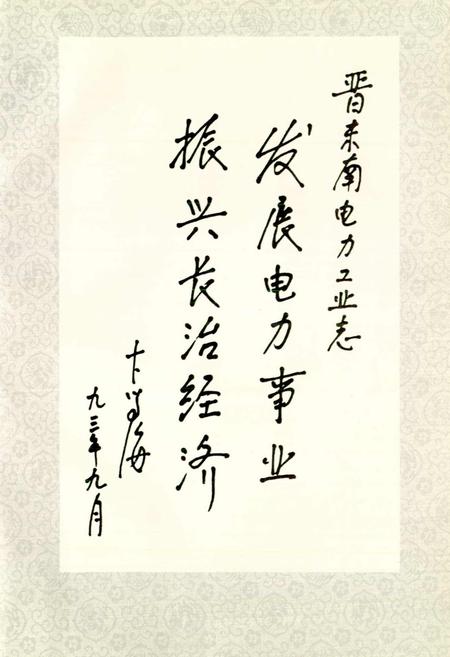 晋东南电力工业志
发展电力事业
振兴长治经济
卞学海
九三年九月